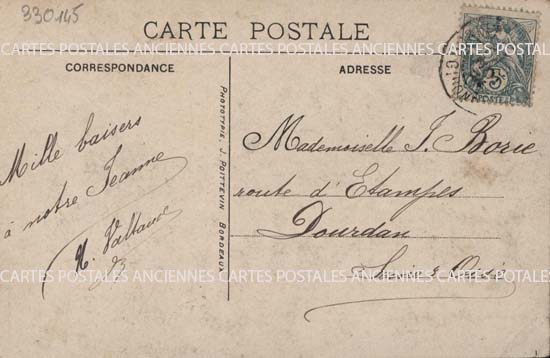 330145
CARTE POSTALE
CARTES POSTALES ANCIENNES CARTES POSTALES ANCIENNES CARTES POSTALES
CORRESPONDANCE
ADRESSE
Mille baisers
à notre Jeanne
PHOTOTYPIE. J. POITTEVIN BORDEAUX
Mademoiselle J. Borie
route d'Etampes
Dourdan
Seine & Oise
CARTES POSTALES ANCIENNES CARTES POSTALES ANCIENNES CARTES POSTALES
5
POSTES